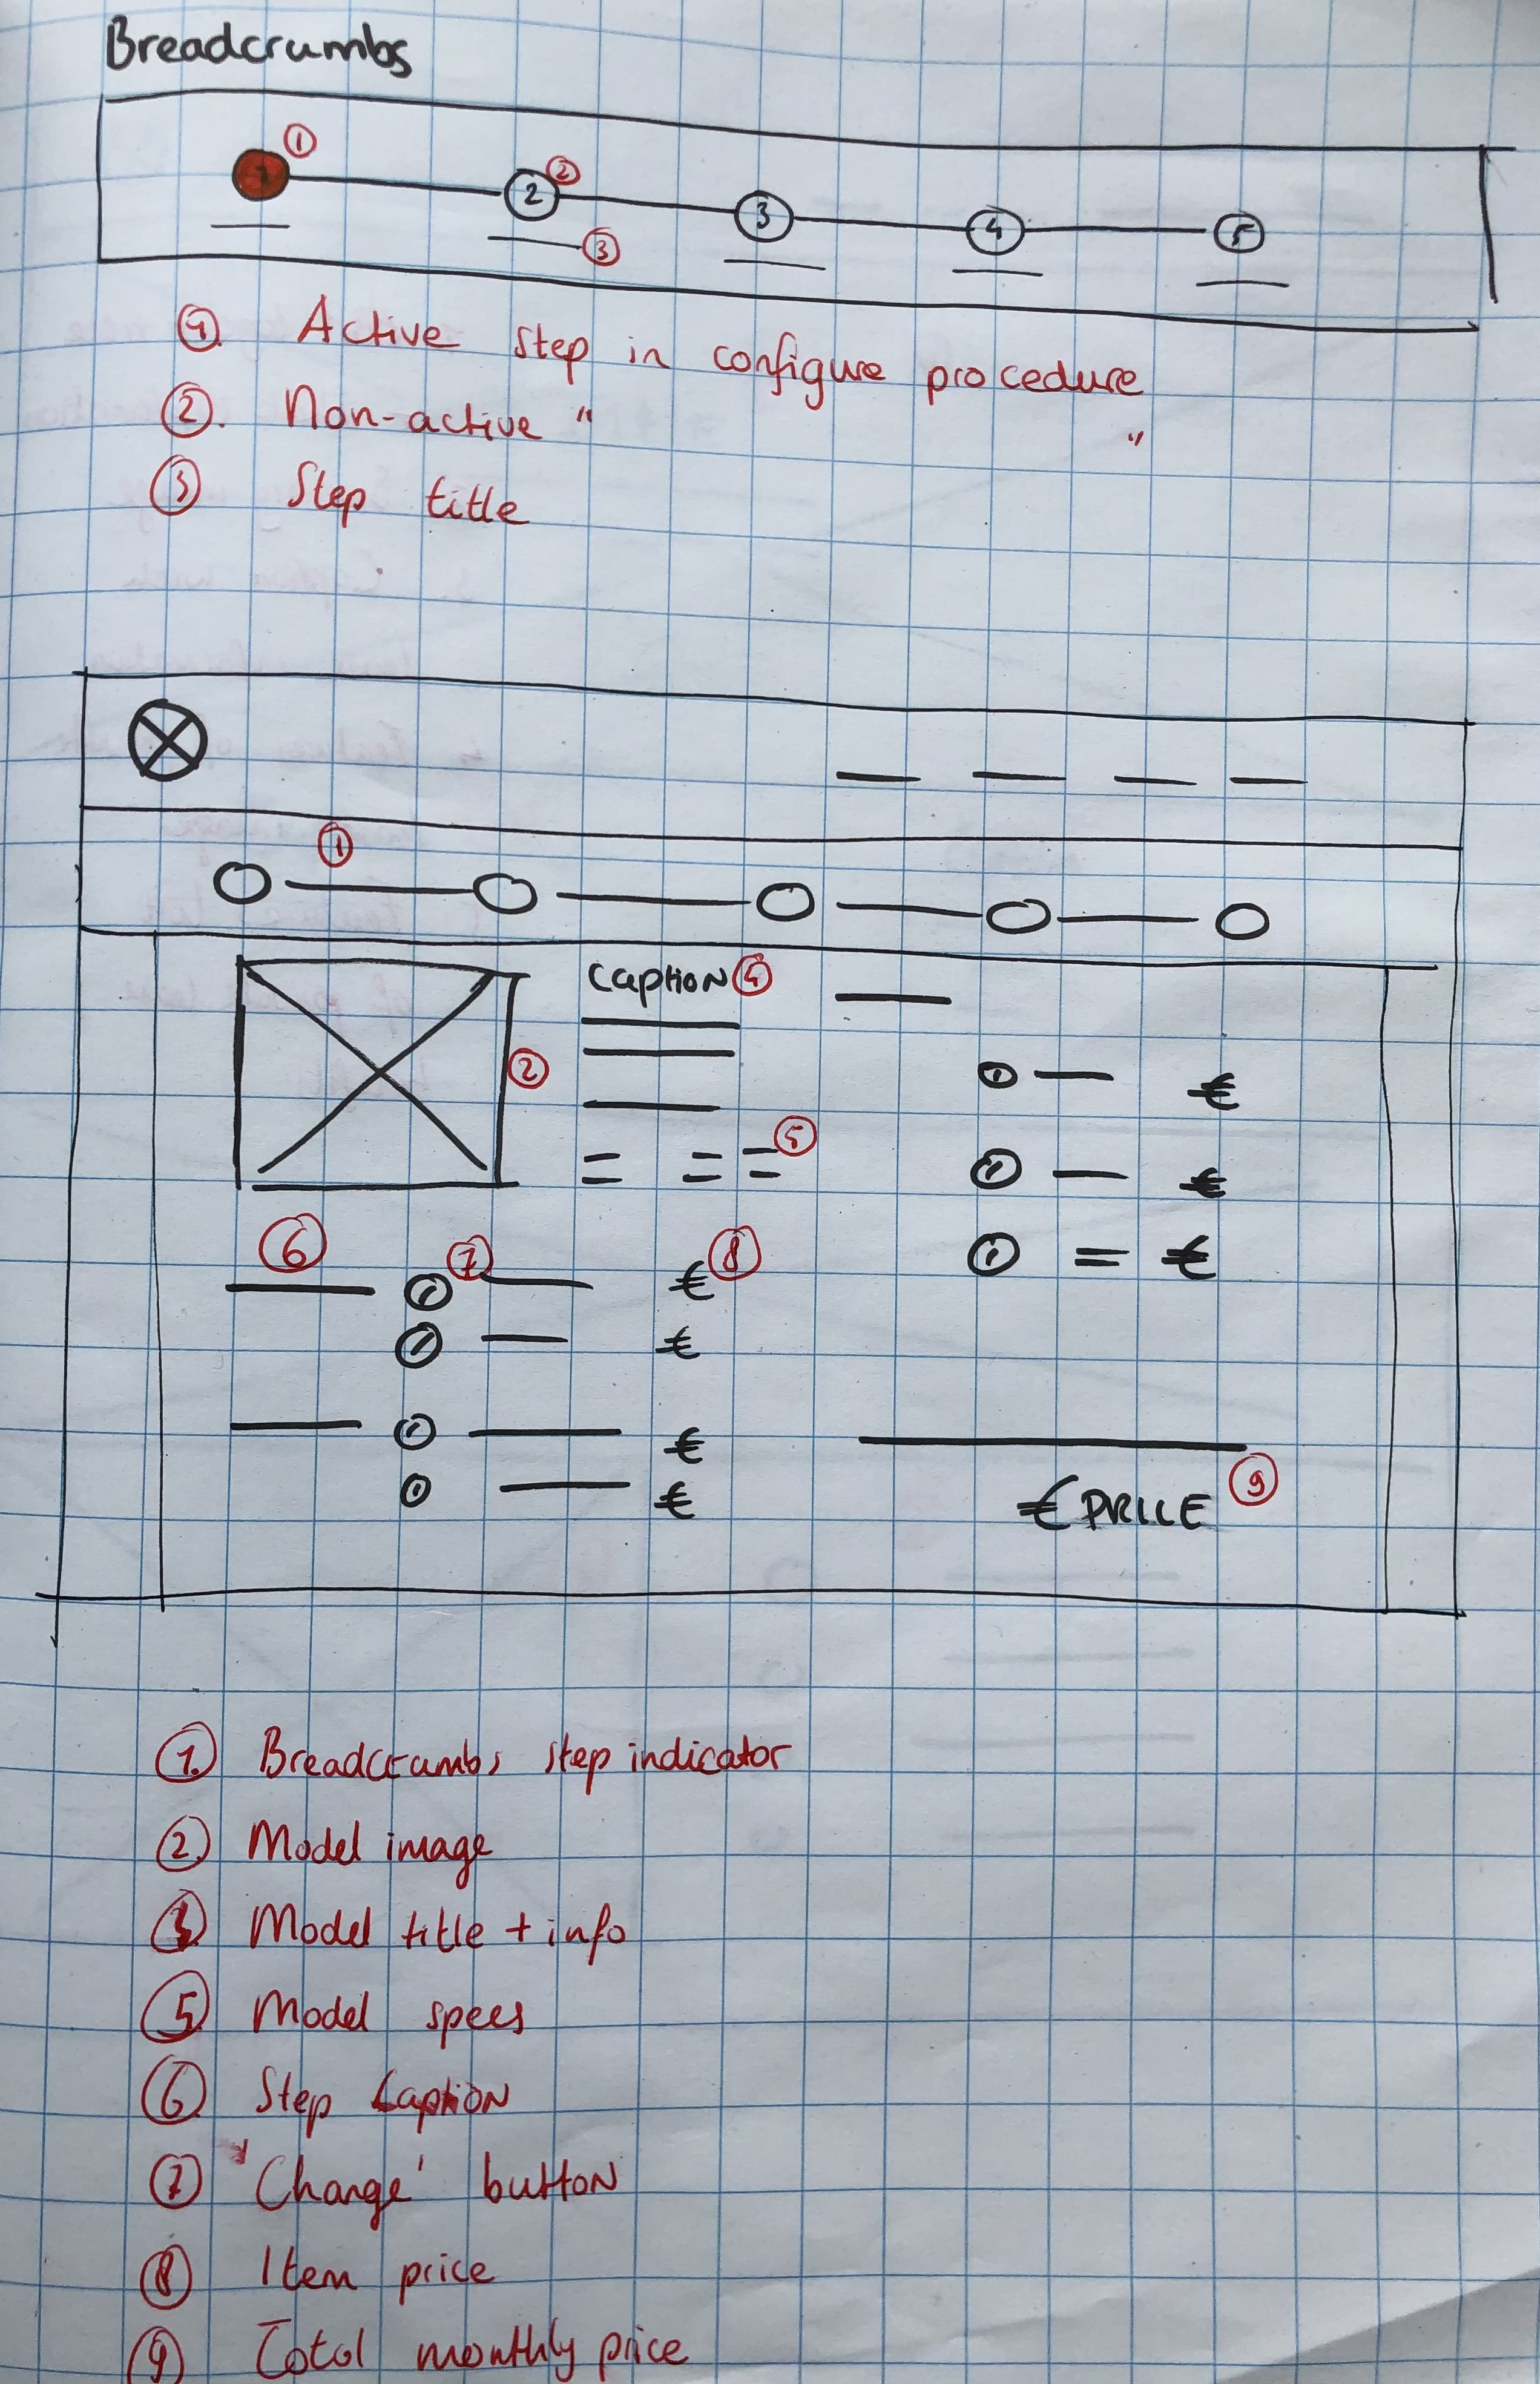 Breadcrumbs
1 ① 2 ② 3 4 5
③
①. Active step in configure procedure
②. Non-active " "
③ Step title
①
Caption ④
②
€
⑤
€
€
⑥ ⑦ € ⑧
€
€
€
€ PRICE ⑨
①. Breadcrumbs step indicator
② Model image
Model title + info
⑤ Model specs
⑥ Step Caption
⑦ 'Change' button
⑧ Item price
⑨ Total monthly price